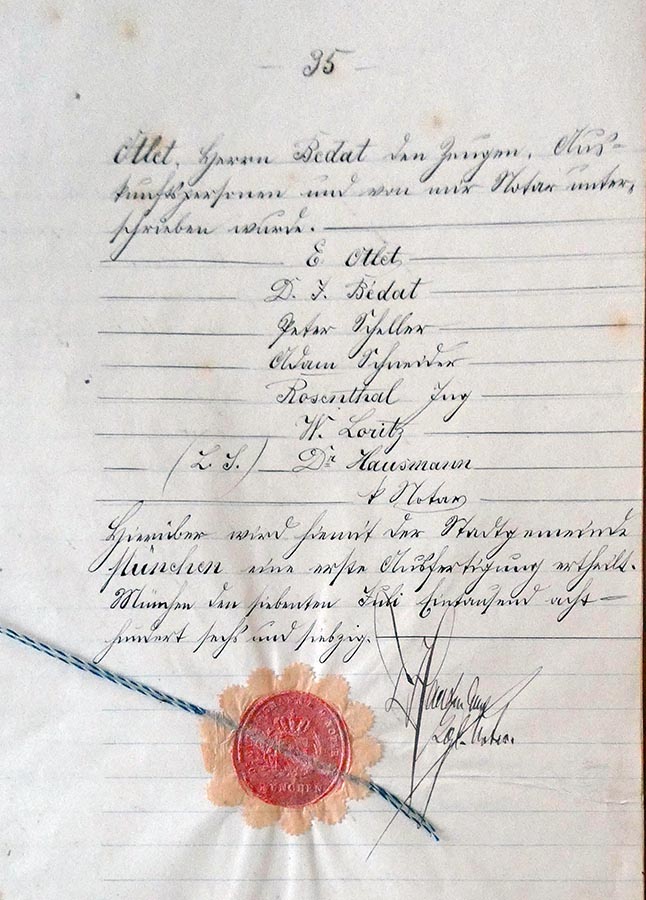 — 35 —
Otlet, Herrn Bedat den Zeugen, Aus-
kunftspersonen und von mir Notar unter-
schrieben wurde.
E. Otlet
D. J. Bédat
Peter Scheller
Adam Schneider
Rosenthal Ing
W. Loritz
(L. S.) Dr Hausmann
k Notar
Hierüber wird hiemit der Stadtgemeinde
München eine erste Ausfertigung ertheilt.
München den siebenten Juli Eintausend acht-
hundert sechs und siebzig.
Kgl. Notar.
MÜNCHEN